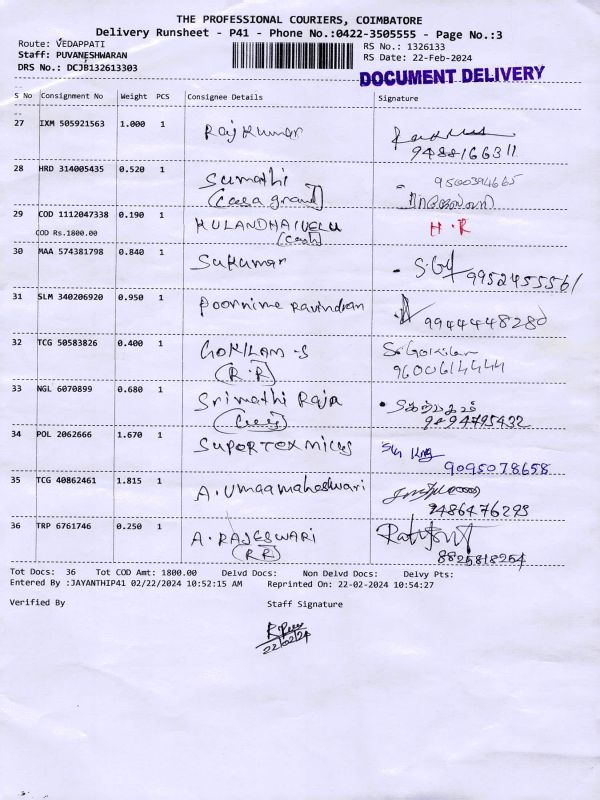 THE PROFESSIONAL COURIERS, COIMBATORE
Delivery Runsheet - P41 - Phone No.:0422-3505555 - Page No.:3
Route: VEDAPPATI
Staff: PUVANESHWARAN
DRS No.: DCJB132613303
RS No.: 1326133
RS Date: 22-Feb-2024
DOCUMENT DELIVERY
S No Consignment No Weight PCS Consignee Details Signature
27 IXM 505921563 1.000 1 Rajkumar
9488166311
28 HRD 314005435 0.520 1 Sumathi 9500394665
(Casa grand)
29 COD 1112047338 0.190 1 KULANDHAIVELU H.R
COD Rs.1800.00 (Cash)
30 MAA 574381798 0.840 1 Sukumar
9952455561
31 SLM 340206920 0.950 1 Poornima Ravindran
9944448280
32 TCG 50583826 0.400 1 GOKILAM.S S. Gokilam
(R.R) 9600614444
33 NGL 6070899 0.680 1 Srimathi Raja
9894795432
34 POL 2062666 1.670 1 SUPORTEX MILLS
9095078658
35 TCG 40862461 1.815 1 A.Umaamaheshwari
9486476293
36 TRP 6761746 0.250 1 A.RAJESWARI
(RR) 8825818254
Tot Docs: 36 Tot COD Amt: 1800.00 Delvd Docs: Non Delvd Docs: Delvy Pts:
Entered By :JAYANTHIP41 02/22/2024 10:52:15 AM Reprinted On: 22-02-2024 10:54:27
Verified By Staff Signature
22/02/24